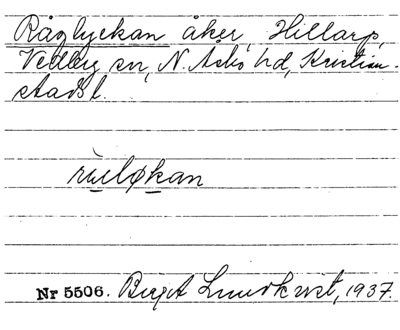 Råglyckan åker, Hillarp,
Vedby sn, N. Åsbo hd, Kristian-
stads l.
rueløkan
Nr 5506. Birgit Lundkvist, 1937.